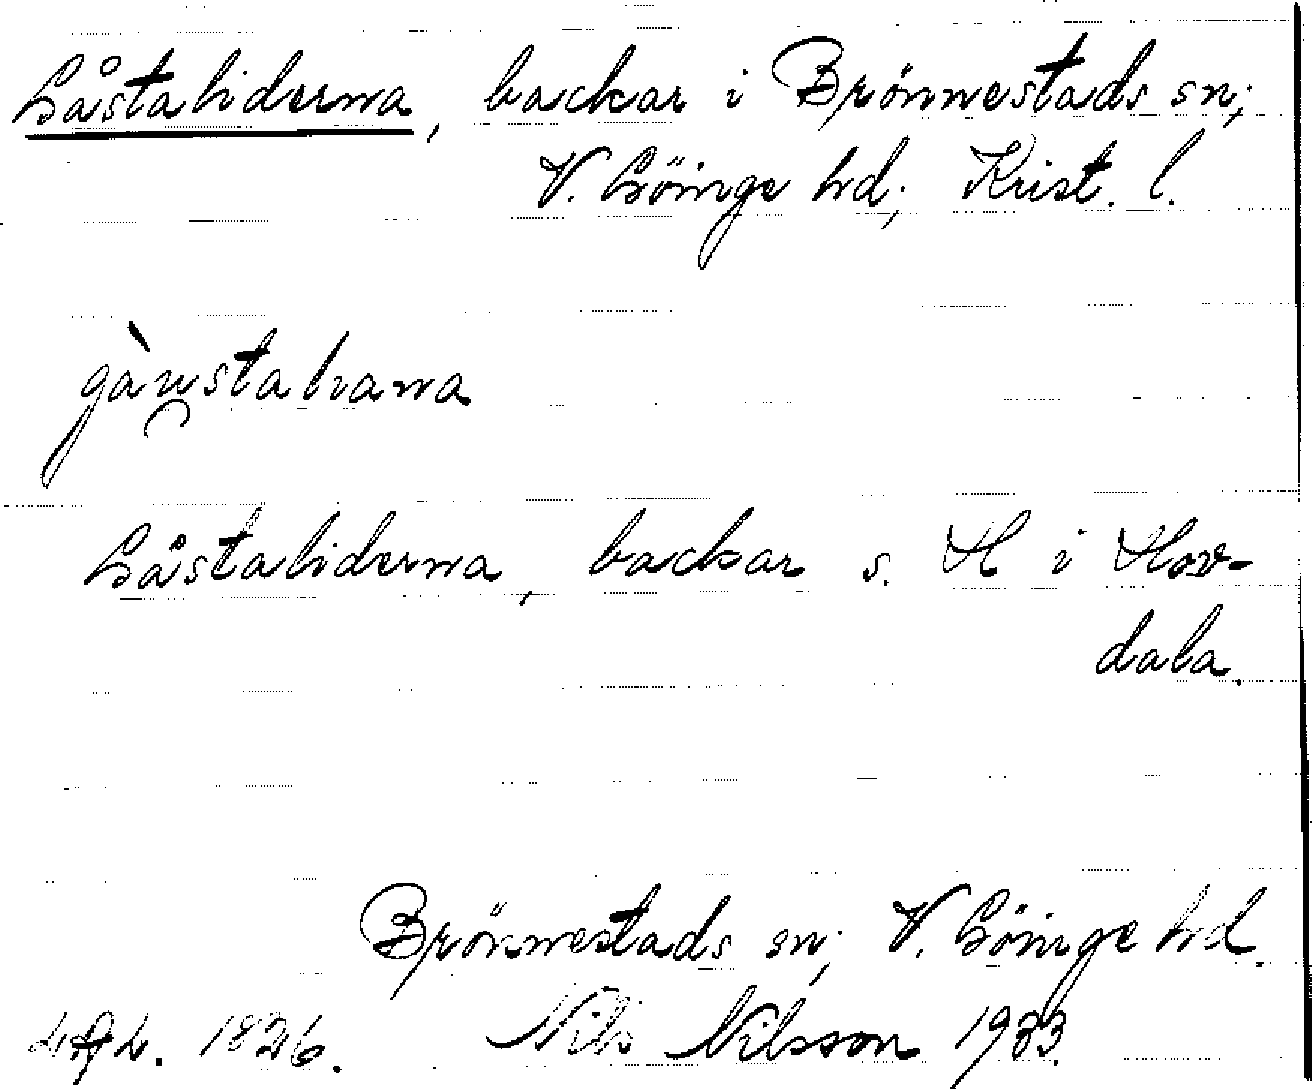 Gåstaliderna, backar i Brönnestads sn;
V. Göinge hd; Krist. l.
gàustaliarna
Gåstaliderna, backar s. H i Hov-
dala.
Brönnestads sn; V. Göinge hd.
1826. Nils Nilsson 1933.